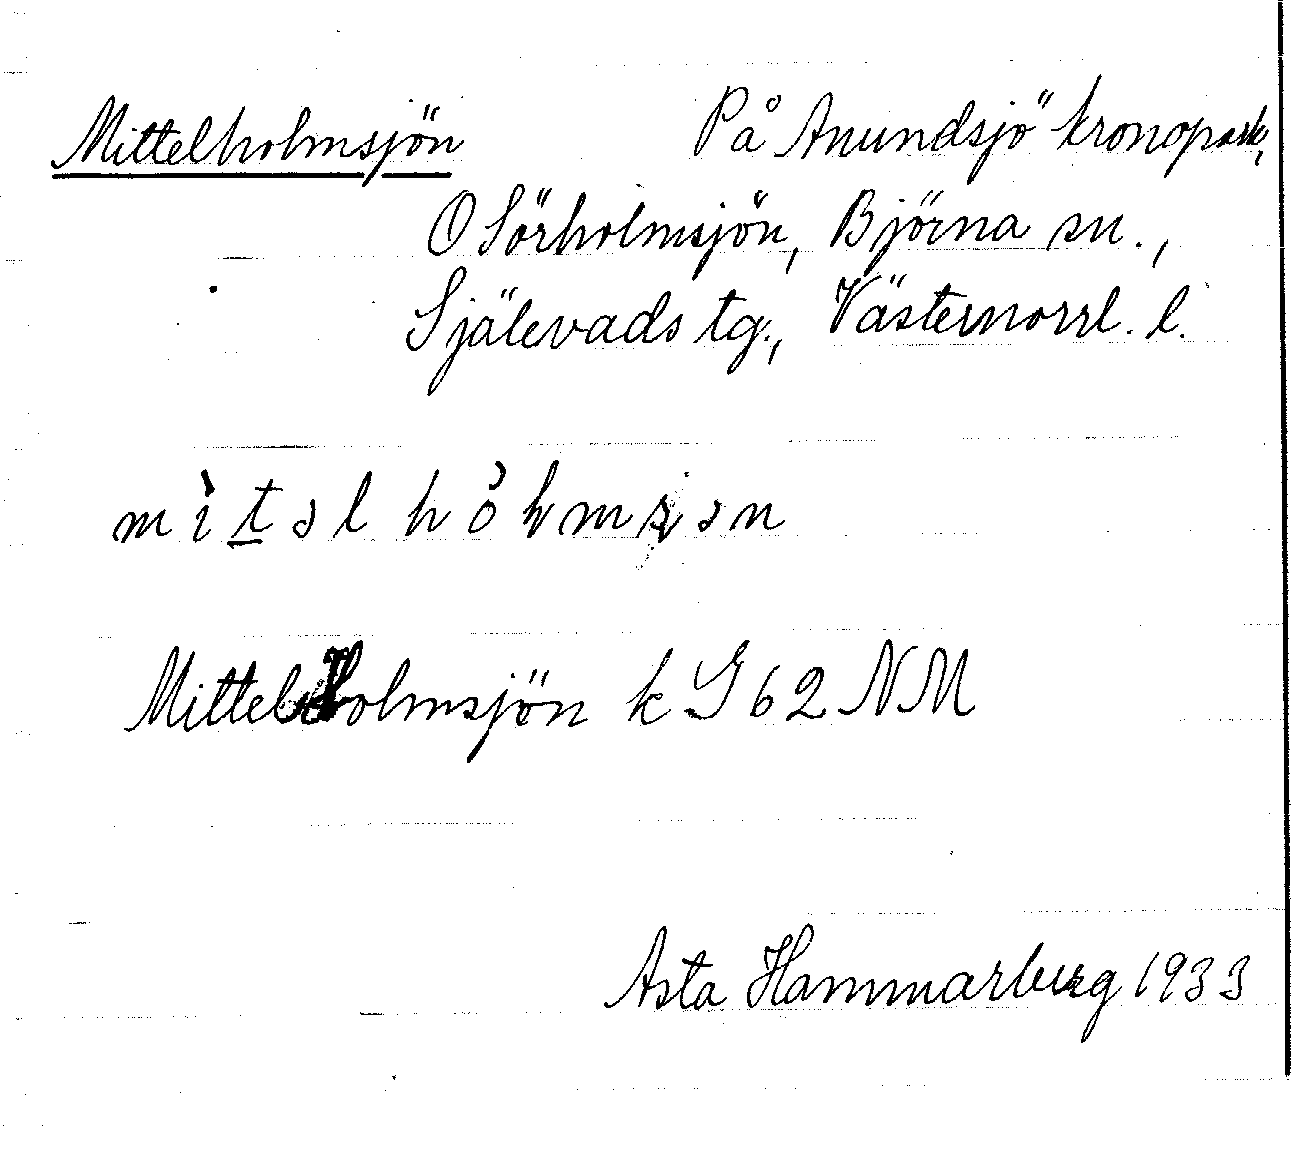 Mittelholmsjön På Anundsjö kronopark,
O Sörholmsjön, Björna sn.,
Själevads tg., Västernorrl. l.
Mittelholmsjön k G 62 NM
Asta Hammarberg 1933